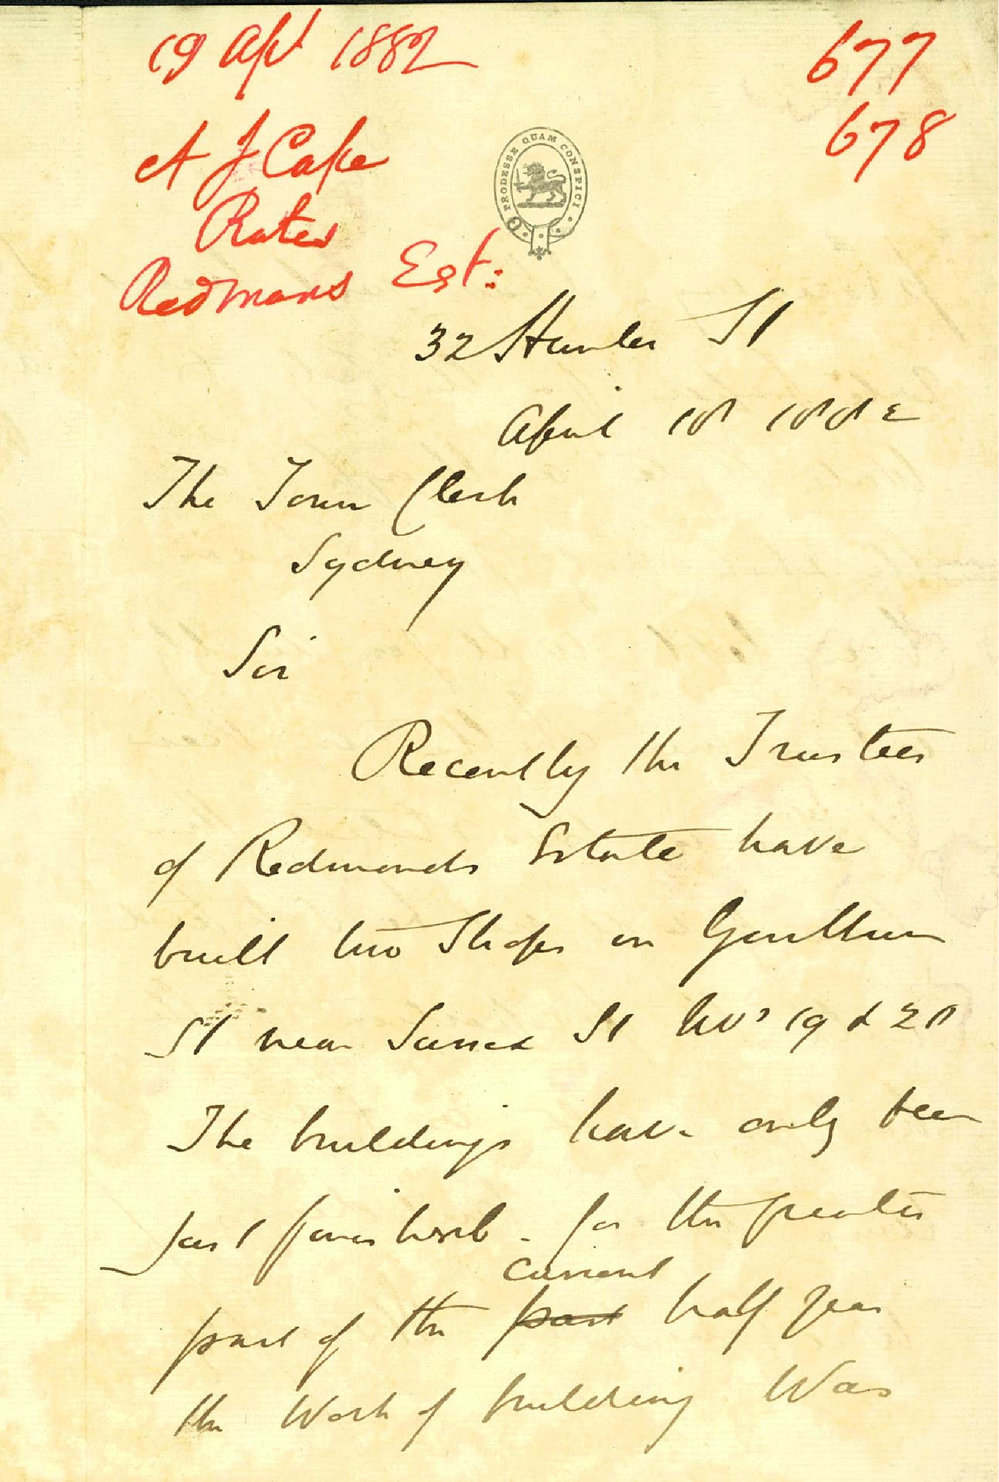 19 Apl 1882
677
678
A J Cape
Rates
Redmans Est:
PRODESSE QUAM CONSPICI
32 Hunter St
April 18 1882
The Town Clerk
Sydney
Sir
Recently the Trustees
of Redmonds Estate have
built two Shops on Goulburn
St near Sussex St Nos 19 & 21
The buildings have only been
just finished. for the greater
current
part of the past half year
the Work of building Was